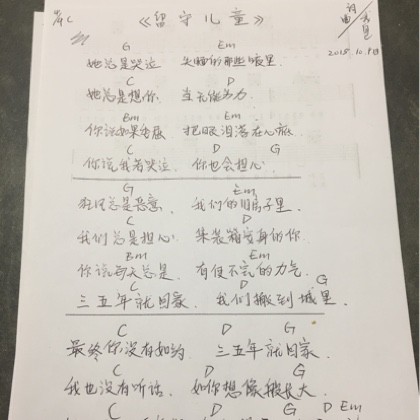 4/4 C 《留守儿童》 词
曲
2015.10.9日
G Em
她总是哭泣 失眠的那些夜里
C D
她总是想你 当无能为力
Bm Em
你说如果委屈 把眼泪落在心底
C D G
你说我若哭泣 你也会担心
G Em
狂风总是恶意 我们的旧房子里
C D
我们总是担心 集装箱安身的你
Bm Em
你说每天总是 有使不完的力气
C D G
三五年就回家 我们搬到城里
C D G
最终你没有如约 三五年就回家
C D G
我也没有听话 如你想像般长大
C D Em